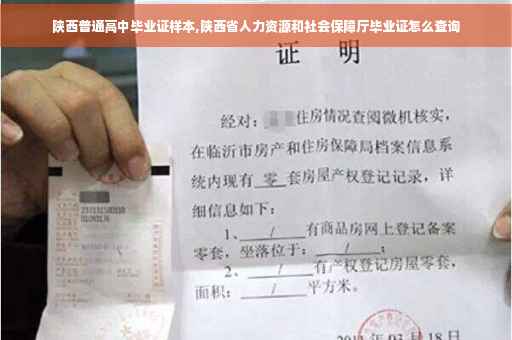 陕西普通高中毕业证样本,陕西省人力资源和社会保障厅毕业证怎么查询
证 明
经对：住房情况查阅微机核实，
在临沂市房产和住房保障局档案信息系
统内现有 零 套房屋产权登记记录，详
细信息如下：
1、 / 有商品房网上登记备案
零套，坐落位于： / ；
2、 / 有产权登记房屋零套，
面积： / 平方米。
03月18日